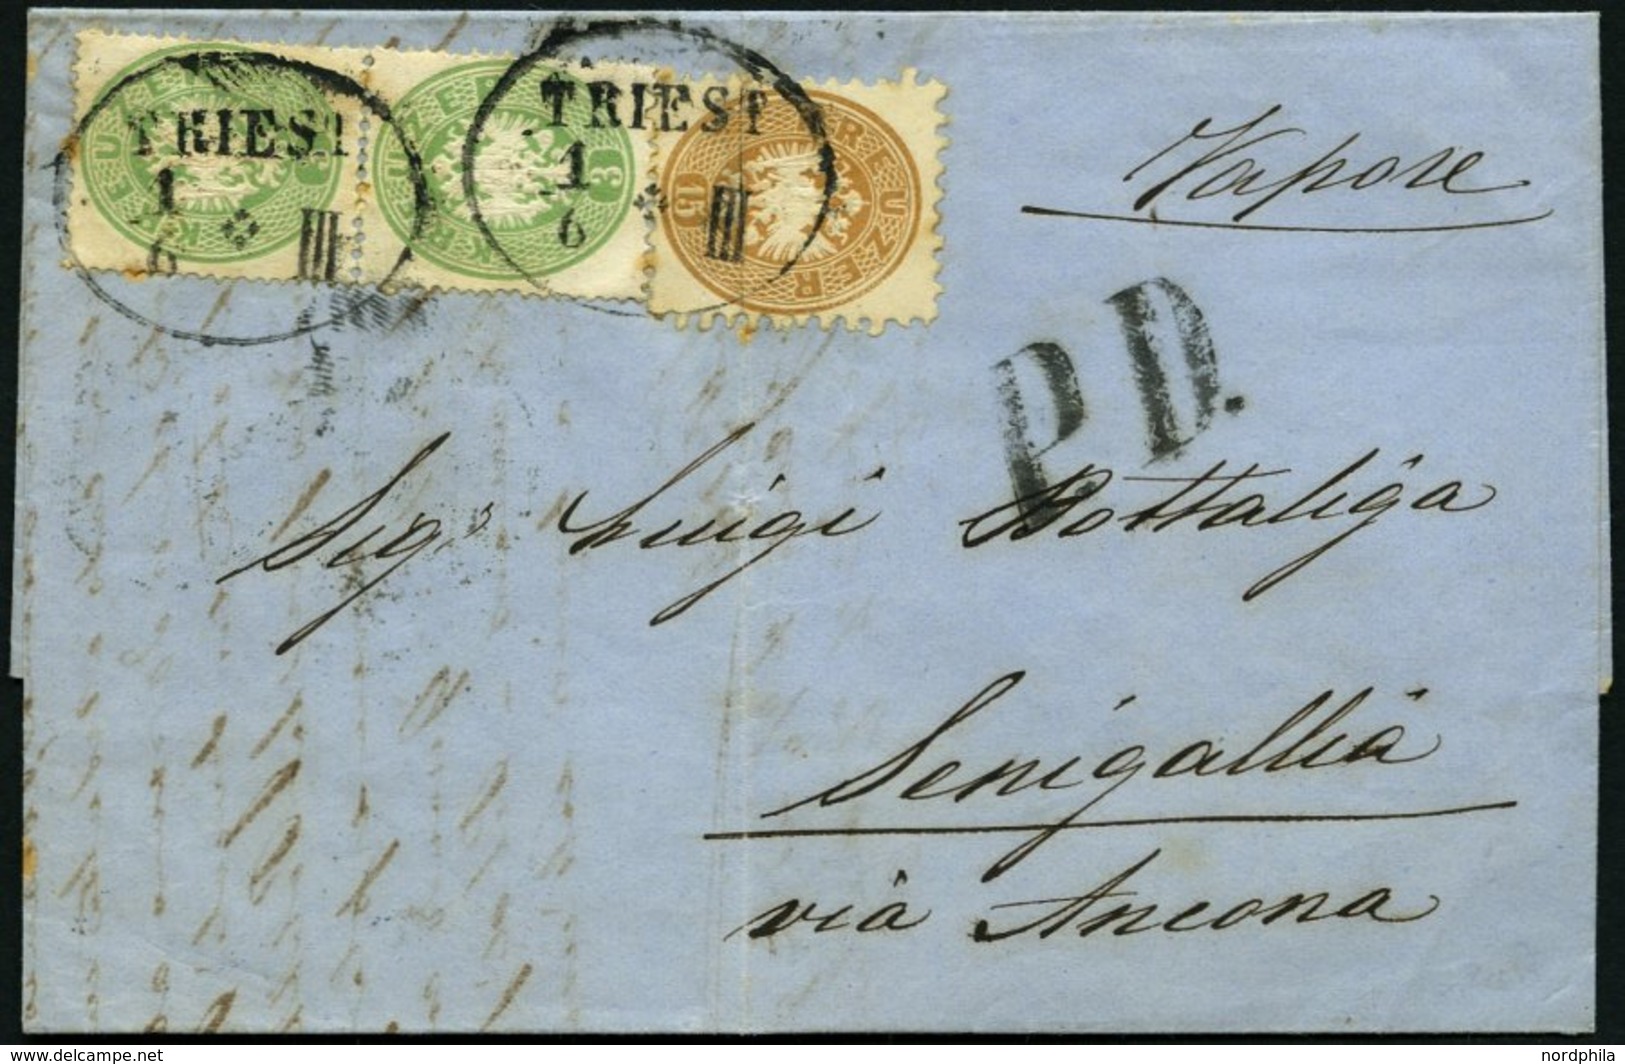 KREUZER 3
KREUZER 3
KREUZER 15
TRIEST
1
6
III
TRIEST
1
6
III
Vapore
P.D.
Sigr Luigi Bottaliga
Senigallia
via Ancona
nordphila